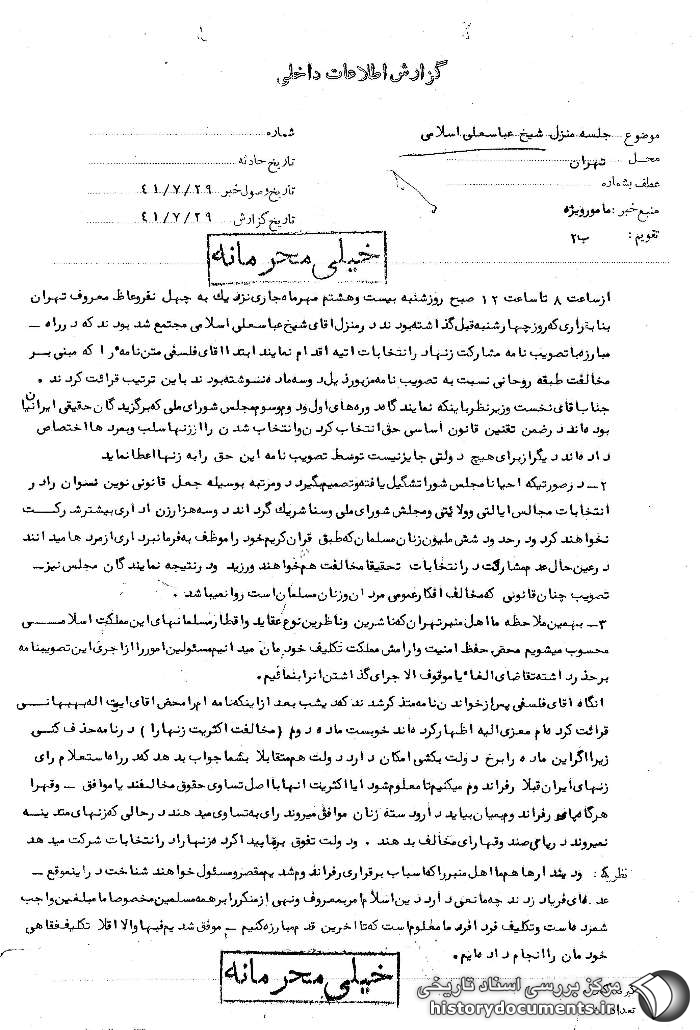 گزارش اطلاعات داخلی
موضوع جلسه منزل شیخ عباسعلی اسلامی
شماره
محل تهران
تاریخ حادثه
عطف بشماره
تاریخ وصول خبر ۴۱/۷/۲۹
منبع خبر: مامورویژه
تاریخ گزارش ۴۱/۷/۲۹
تقویم: ب۲
خیلی محرمانه
ازساعت ۸ تا ساعت ۱۲ صبح روزشنبه بیست وهشتم مهرماه جاری نزدیك به چهل نفروعاظ معروف تهران
بنابقراری که روزچهارشنبه قبل گذاشته بودند درمنزل اقای شیخ عباسعلی اسلامی مجتمع شد بودند که درراه –
مبارزه با تصویب نامه مشارکت زنها درانتخابات اتیه اقدام نمایند ابتدا اقای فلسفی متن نامه را که مبنی بر
مخالفت طبقه روحانی نسبت به تصویب نامه مزبورذیل درسه ماده نوشته بودند باین ترتیب قرائت کردند .
جناب اقای نخست وزیرنظرباینکه نمایندگان دوره های اول ودوم وسوم مجلس شورای ملی که برگزیدگان حقیقی ایرانیان
بوده اند درضمن تقنین قانون اساسی حق انتخاب کردن وانتخاب شدن را اززنها سلب وبمردها اختصاص
داده اند دیگرازبرای هیچ دولتی جایزنیست توسط تصویب نامه این حق رابه زنها اعطا نماید
۲– درصورتیکه احیانا مجلس شورا تشگیل یافته وتصمیم بگیرد ومرتبه بوسیله جعل قانونی نوین نسوان رادر
انتخابات مجالس ایالتی وولایتی ومجلش شورای ملی وسنا شریك گرداند دوسه هزارزن اداری بیشترشرکت
نخواهند کرد ودرحدود شش ملیون زنان مسلمان که طبق قران کریم خود را موظف به فرمانبرداری ازمردها میدانند
درعین حال عدم مشارکت درانتخابات تحقیقا مخالفت هم خواهند ورزید ودرنتیجه نمایندگان مجلس نیز–
تصویب چنان قانونی که مخالف افکارعمومی مردان وزنان مسلمان است روا نمیباشد .
۳– بهمین ملاحظه ما اهل منبرتهران که ناشرین وناظرین نوع عقاید واقطارمسلمانهای این مملکت اسلامی
محسوب میشویم محض حفظ امنیت وارامش مملکت تکلیف خودمان میدانیم مسئولین امور را ازاجرای این تصویبنامه
برحذرداشته تقاضای الغاء یا موقوف الاجرای گذاشتن انرا بنمائیم.
انگاه اقای فلسفی پس ازخواندن نامه متذکرشدند که دیشب بعد ازاینکه نامه ام را محض اقای ایت اله بهبهانی
قرائت کرده ام معزی الیه اظهارکرده اند خوبست ماده دوم (مخالفت اکثریت زنها را) درنامه حذف کنی
زیرا اگراین ماده را برخ دولت بکشی امکان دارد دولت هم متقابلا بشما جواب بدهد که درراه استعلام رای
زنهای ایران قبلا رفراندوم میکنیم تا معلوم شود ایا اکثریت انها با اصل تساوی حقوق مخالفند یا موافق – وقهرا
هرگاه رفراندوم بمیان بیاید دارودسته زنان موافق میروند رای به تساوی میدهند درحالی که زنهای متدینه
نمیروند وقها رای مخالف بدهند . ودولت تفوق برقاید اکرده زنها را درانتخابات شرکت میدهد
نظریه: ودینداره هم ما اهل منبررا که اسباب برقراری رفراندوم شدیم مقصرومسئول خواهند شناخت دراینموقع –
عده ای فریاد زدند چه مانعی دارد دین اسلام امربمعروف ونهی ازمنکررا برهمه مسلمین مخصوصا ما مبلغین واجب
شمرده است وتکلیف فرد افرد ما معلوم است که تا اخرین قدم مبارزه کنیم – موفق شدیم فبها والا اقلا تکلیف فقاهی
خودمان را انجام داده ایم.
خیلی محرمانه
مرکز بررسی اسناد تاریخی
historydocuments.ir